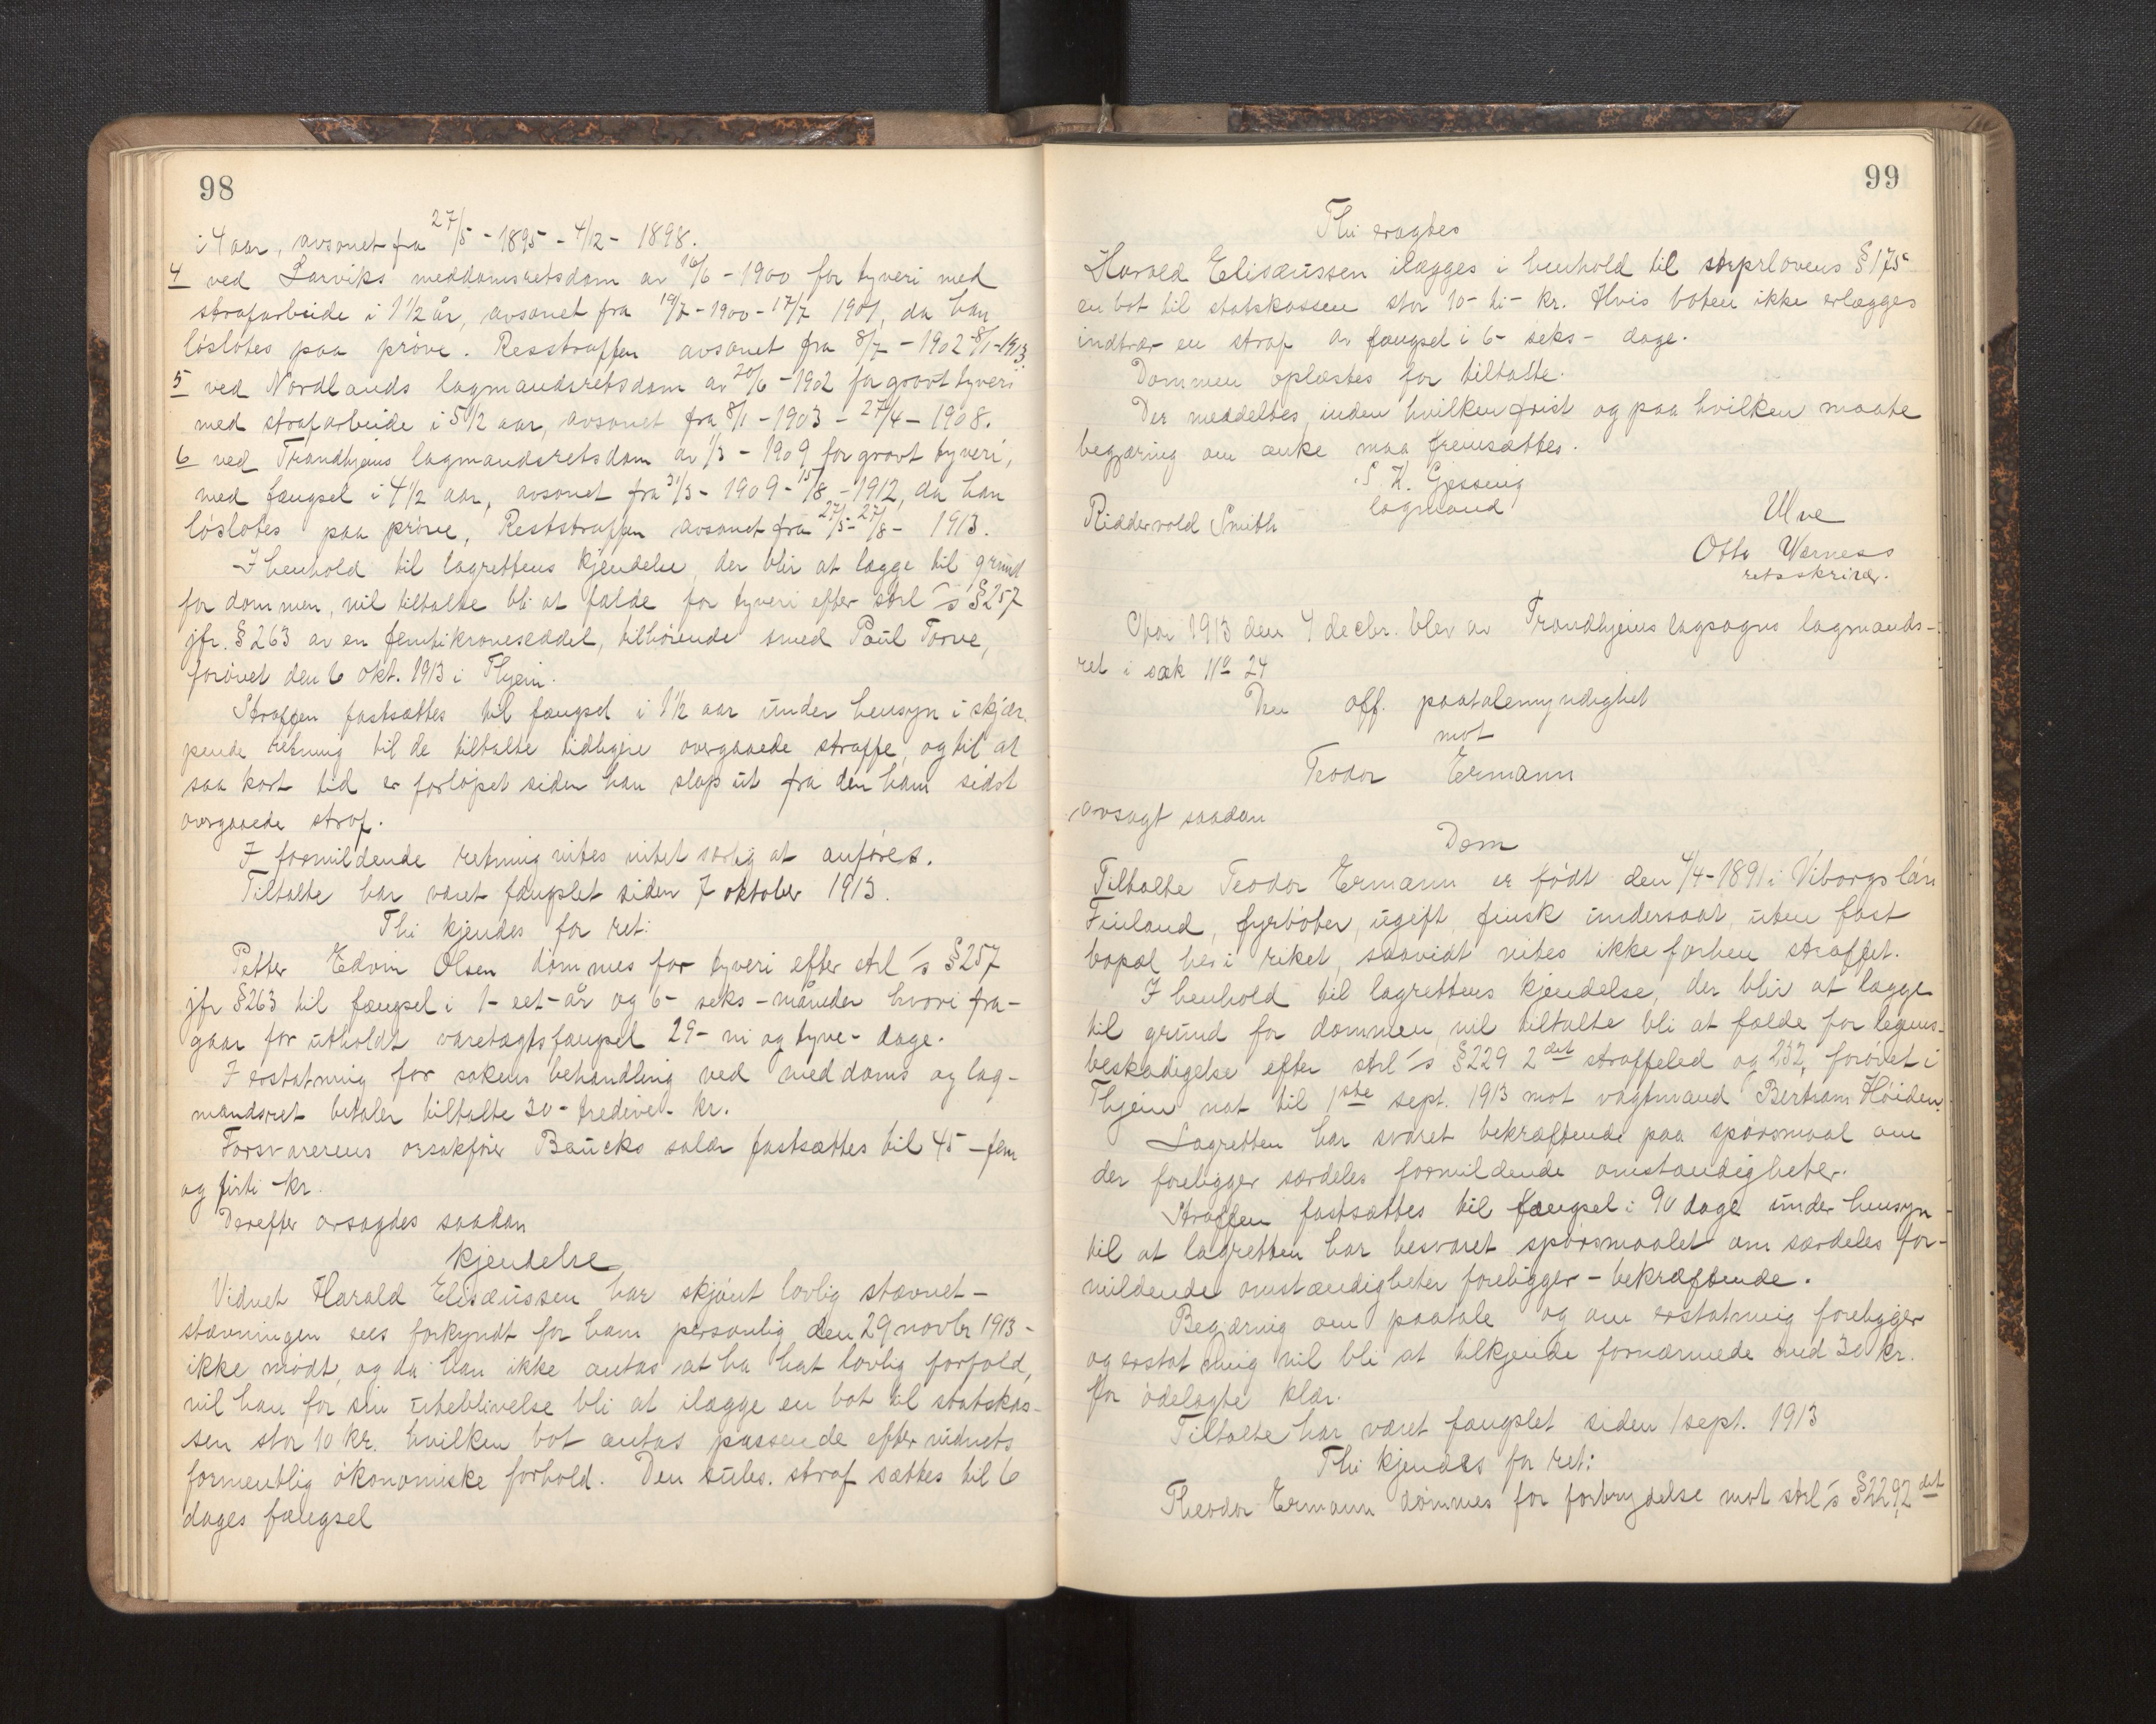 98
i 4 aar, avsonet fra 27/5 - 1895 - 4/12 - 1898.
4 ved Larviks meddomsretsdom av 16/6 - 1900 for tyveri med
strafarbeide i 1 1/2 år, avsonet fra 19/7 - 1900 - 17/7 1901, da han
lösslotes paa pröve. Resstraffen avsonet fra 8/7 - 1902 - 8/1 - 1913
5 ved Nordlands lagmandsretsdom av 20/6 - 1902 for grovt tyveri
med strafarbeide i 5 1/2 aar, avsonet fra 8/1 - 1903 - 27/4 - 1908.
6 ved Trondhjems lagmandsretsdom av 1/3 - 1909 for grovt tyveri,
med fængsel i 4 1/2 aar, avsonet fra 31/3 - 1909 - 15/8 - 1912, da han
löslotes paa pröve, Reststraffen avsonet fra 27/5 - 27/8 - 1913.
I henhold til lagrettens kjendelse, der blir at lægge til grund
for dommen, vil tiltalte bli at fælde for tyveri efter strl's § 257
jfr. § 263 av en femtikroneseddel, tilhörende smed Paul Torve,
forövet den 6 okt. 1913 i Thjem.
Straffen fastsættes til fængsel i 1 1/2 aar under hensyn i skjær-
pende retning til de tiltalte tidligere overgaaede straffe, og til at
saa kort tid er forlöpet siden han slap ut fra den ham sidst
overgaaede straf.
I formildende retning vites intet særlig at anföres.
Tiltalte har været fængslet siden 7 oktober 1913.
Thi kjendes for ret:
Petter Edvin Olsen dömmes for tyveri efter strl's § 257
jfr § 263 til fængsel i 1- eet - år og 6- seks - måneder hvori fra-
gaar for utholdt varetægtsfængsel 29 - ni og tyve - dage.
I erstatning for sakens behandling ved meddoms og lag-
mandsret betaler tiltalte 30 - tredive - kr.
Forsvarerens orsakförer Baucks salær fastsættes til 45 - fem
og firti - kr.
Derefter avsagdes saadan
kjendelse
Vidnet Harald Elisæussen har skjönt lovlig stævnet -
stævningen sees forkyndt for ham personlig den 29 novbr 1913 -
ikke mödt, og da han ikke antas at ha hat lovlig forfald,
vil han for sin uteblivelse bli at ilægge en bot til statskas-
sen stor 10 kr. hvilken bot antas passende efter vidnets
formentlig ökonomiske forhold. Den subs. straf sættes til 6
dages fængsel
99
Thi eragtes
Harald Elisæussen ilægges i henhold til strprlovens § 175
en bot til statskassen stor 10 - ti - kr. Hvis boten ikke erlægges
indtrær en straf av fængsel i 6 - seks - dage.
Dommen oplæstes for tiltalte.
Der meddeltes, inden hvilken frist og paa hvilken maate
begjæring om anke maa fremsættes.
S. K. Gjessing
lagmand
Riddervold Smith
Ulve
Otto Værness
retsskriver.
Aar 1913 den 4 decbr. blev av Trondhjems lagsogns lagmands-
ret i sak No 24
Den off. paatalemyndighet
mot
Teodor Ermann
avsagt saadan
Dom
Tiltalte Teodor Ermann er födt den 4/4 - 1891 i Viborgs län
Finland, fyrböter, ugift, finsk undersaat, uten fast
bopæl her i riket, saavidt vites ikke forhen straffet.
I henhold til lagrettens kjendelse, der blir at lægge
til grund for dommen, vil tiltalte bli at fælde for legems-
beskadigelse efter strl's § 229 2det straffeled og 232, forövet i
Thjem nat til 1ste sept. 1913 mot vagtmand Bertram Höiden.
Lagretten har svaret bekræftende paa spörsmaal om
der foreligger særdeles formildende omstændigheter.
Straffen fastsættes til fængsel i 90 dage under hensyn
til at lagretten har besvaret spörsmaalet om særdeles for-
mildende omstændigheter foreligger - bekræftende.
Begjæring om paatale og om erstatning foreligger
og erstatning vil bli at tilkjende fornærmede med 30 kr.
for ödelagte klær.
Tiltalte har været fængslet siden 1 sept. 1913
Thi kjendes for ret:
Theodor Ermann dömmes for forbrydelse mot strl's § 229, 2det